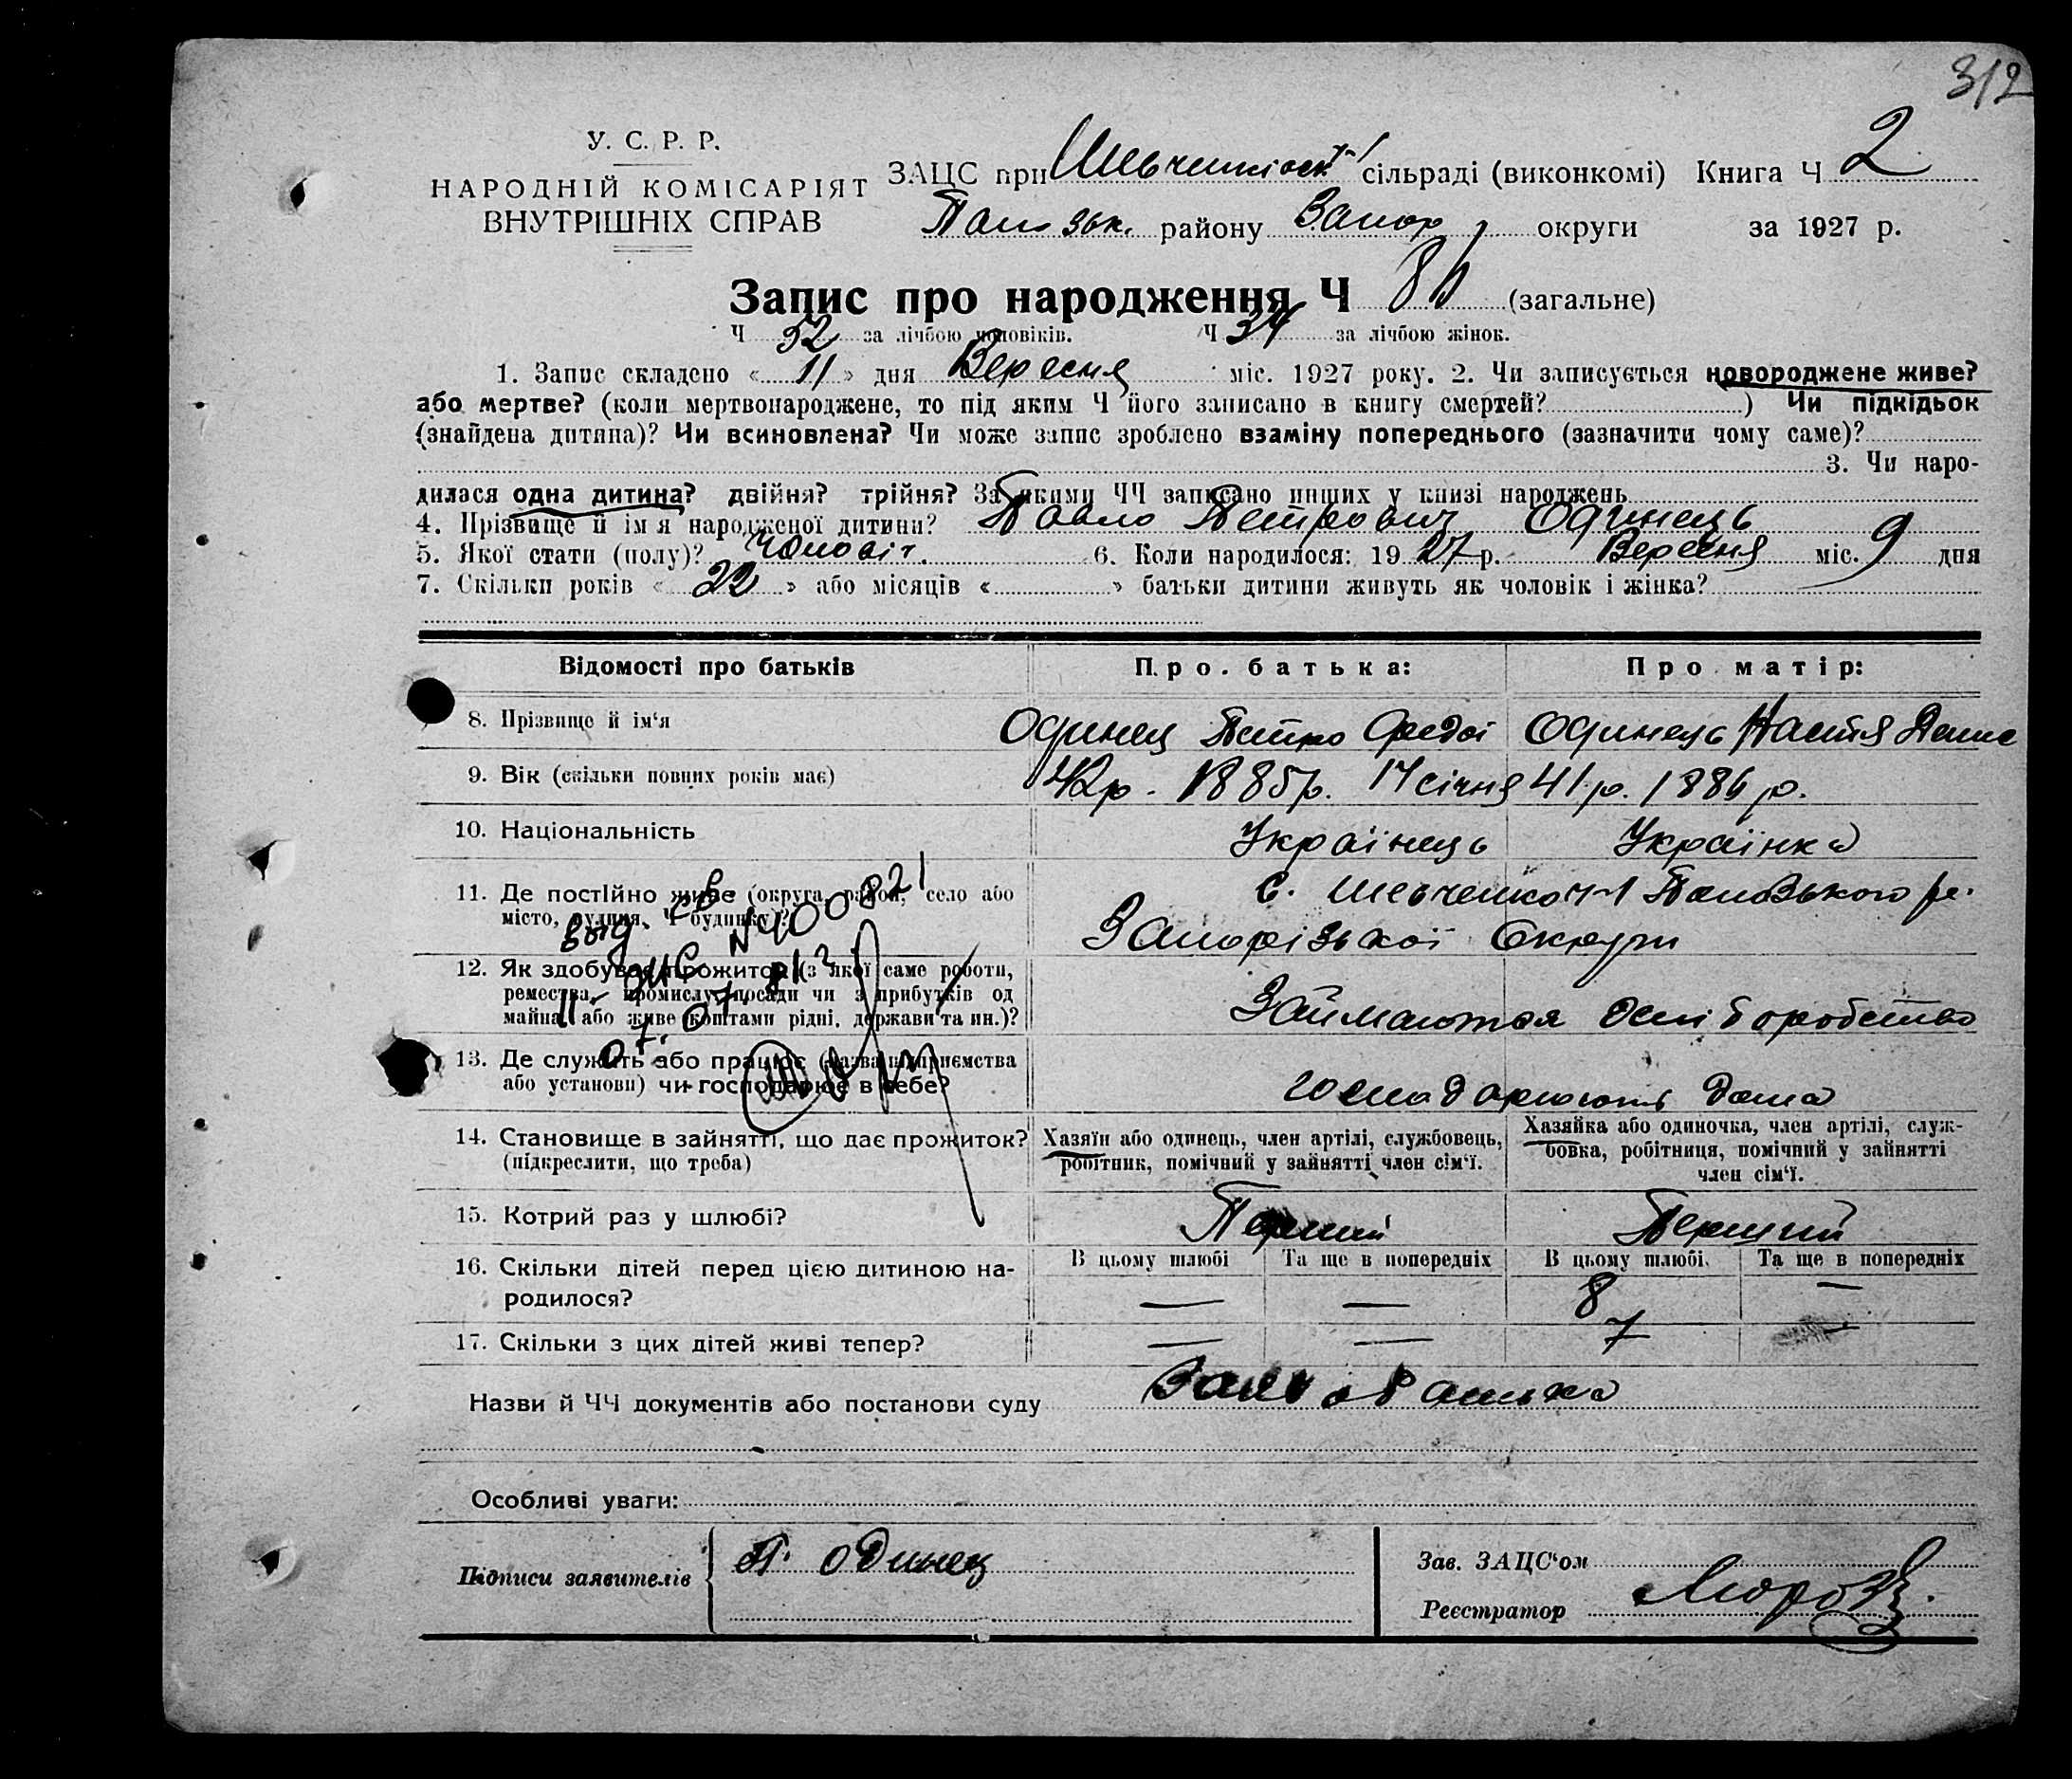 312
У. С. Р. Р.
НАРОДНІЙ КОМІСАРІЯТ
ВНУТРІШНІХ СПРАВ
ЗАЦС при сільраді (виконкомі) Книга Ч 2
району Запор округи за 1927 р.
Запис про народження Ч 86 (загальне)
Ч 52 за лічбою чоловіків. Ч 34 за лічбою жінок.
1. Запис складено « 11 » дня Вересня міс. 1927 року. 2. Чи записується новороджене живе?
або мертве? (коли мертвонароджене, то під яким Ч його записано в книгу смертей? ) Чи підкідьок
(знайдена дитина)? Чи всиновлена? Чи може запис зроблено взаміну попереднього (зазначити чому саме)?
3. Чи наро-
дилася одна дитина? двійня? трійня? За якими ЧЧ записано инших у книзі народжень
4. Прізвище й ім'я народженої дитини? Павло Петрович Одинець
5. Якої стати (полу)? Чоловіч. 6. Коли народилося: 1927 р. Вересня міс. 9 дня
7. Скільки років « 22 » або місяців « » батьки дитини живуть як чоловік і жінка?
Відомості про батьків Про батька: Про матір:
8. Прізвище й ім‘я Одинец Петро Федос Одинець Настя Денис
9. Вік (скільки повних років має) 42р. 1885р. 17 січня 41 р. 1886 р.
10. Національність Українець Українка
11. Де постійно живе (округа, район, село або
місто, вулиця, Ч будинку)?
с. Шевченко ч-1
Запорізької Округи
12. Як здобуває прожиток (з якої саме роботи,
ремества, промислу, посади чи з прибутків од
майна, або живе коштами рідні, держави та ин.)?
Займаются
13. Де служить або працює (назва підприємства
або установи) чи господарює в себе?
господарюють дома
14. Становище в зайнятті, що дає прожиток?
(підкреслити, що треба)
Хазяїн або одинець, член артілі, службовець,
робітник, помічний у зайнятті член сім‘ї.
Хазяйка або одиночка, член артілі, служ-
бовка, робітниця, помічний у зайнятті
член сім‘ї.
15. Котрий раз у шлюбі? Перший Перший
16. Скільки дітей перед цією дитиною на-
родилося?
В цьому шлюбі Та ще в попередніх В цьому шлюбі. Та ще в попередніх
— — 8 —
17. Скільки з цих дітей живі тепер? — — 7 —
Назви й ЧЧ документів або постанови суду Заява батька
Особливі уваги:
Підписи заявителів П. Одинец
Зав. ЗАЦС‘ом
Реєстратор Мороз